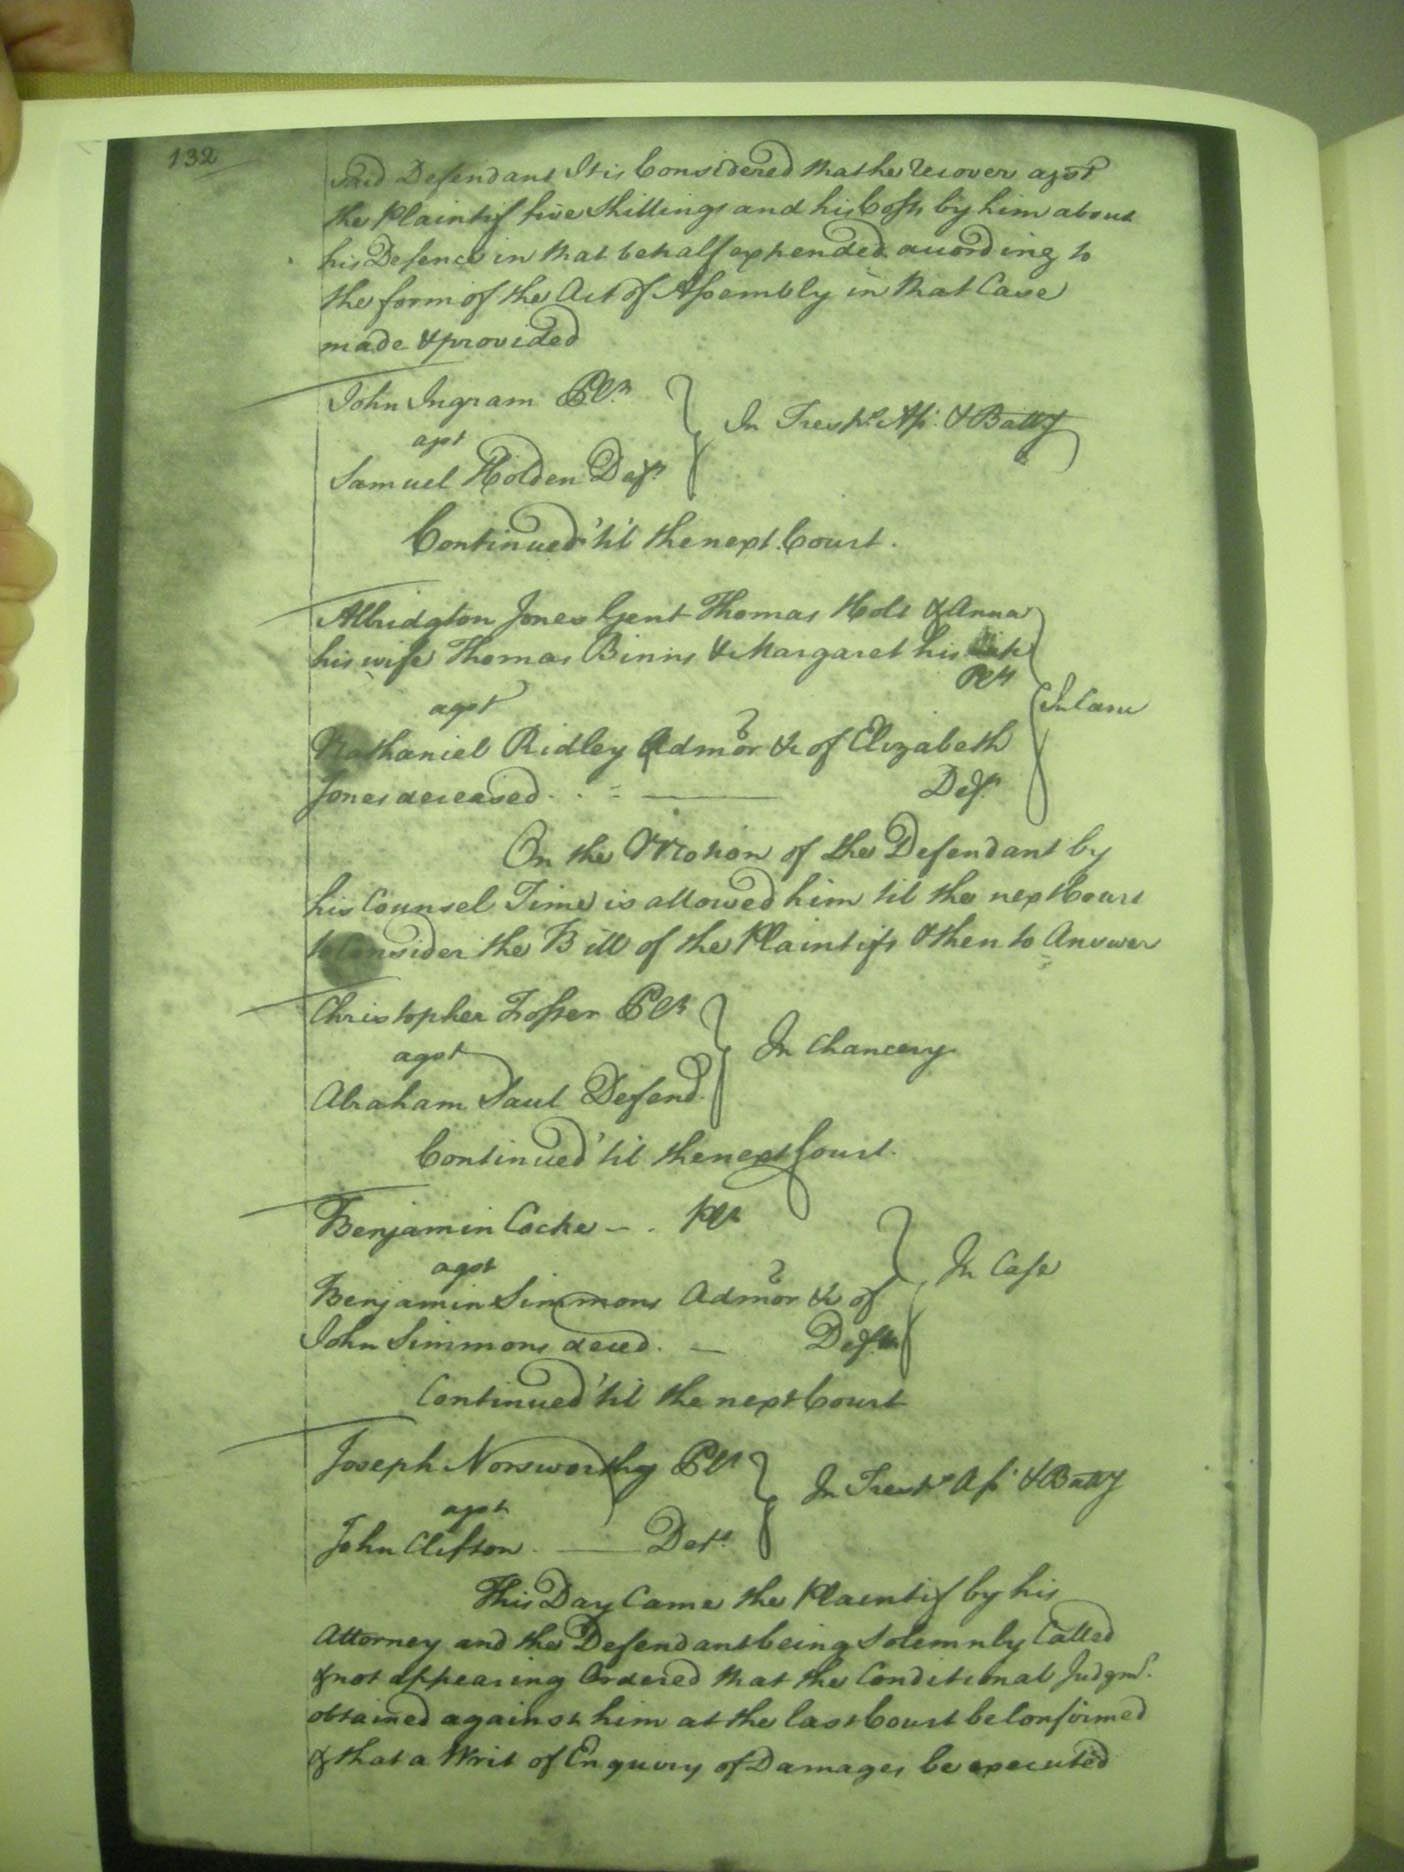 132
said Defendant It is Considered that he recover agst
the Plaintif five Shillings and his Costs by him about
his Defence in that behalf expended according to
the form of the Act of Assembly in that Case
made & provided
John Ingram Plt.
agst
Samuel Holden Deft.
In Tresps. Ass. & Batty
Continued 'til the next Court.
Albridgton Jones Gent Thomas Holt & Anna
his wife Thomas Binns & Margaret his
Plts
agst
In Canc
Nathaniel Ridley Admor &c of Elizabeth
Jones deceased. Deft.
On the Motion of the Defendant by
his Counsel Time is allowed him til the next Court
to Consider the Bill of the Plaintifs & then to Answer
Christopher Foster Plt
agst
Abraham Saul Defend.
In Chancery
Continued 'til the next Court.
Benjamin Cocke - . Plt
agst
Benjamin Simmons Admor &c of
John Simmons deced. - Deft
In Case
Continued 'til the next Court
Joseph Norsworthy Plt
agst
John Clifton. Deft.
In Tresps. Ass. & Batty
This Day Came the Plaintif by his
Attorney and the Defendant being Solemnly Called
& not appearing Ordered that the Conditional Judgmt.
obtained against him at the last Court be Confirmed
& that a Writ of Enquiry of Damages be executed